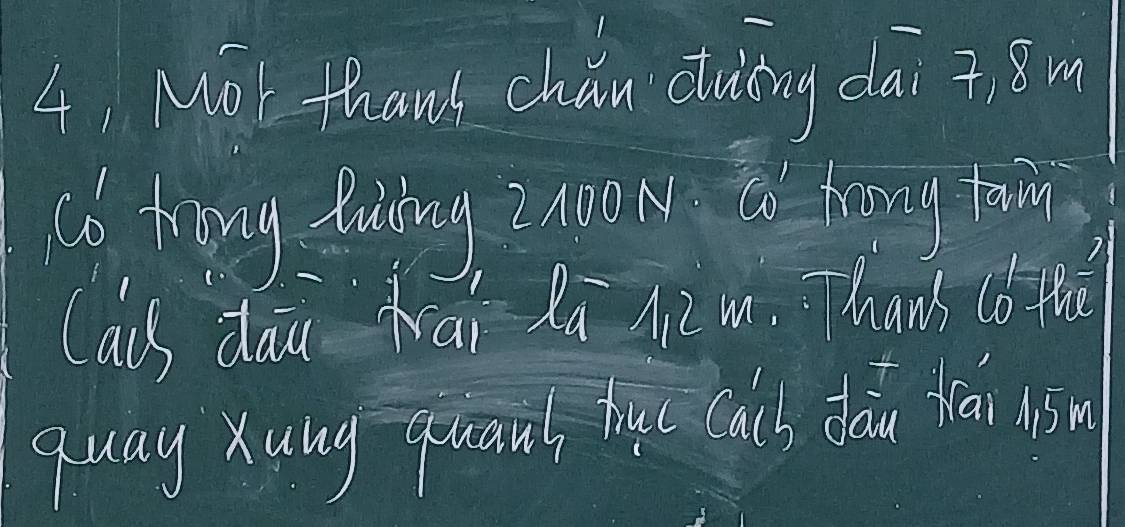 4, Một thanh chắn đường dài 7,8 m
có trọng lượng 2100 N. có trọng tâm
Cách đầu trái là 1,2 m. Thanh có thể
quay xung quanh trục cách đầu trái 1,5 m